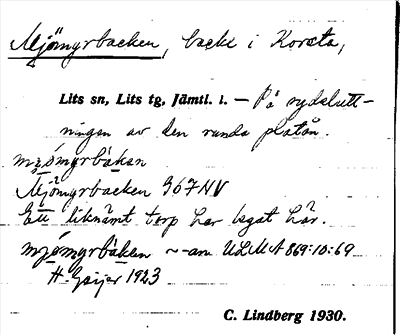 Mjömyrbacken, backe i Korsta,
Lits sn, Lits tg, Jämtl. l. — På sydslutt-
ningen av den runda platån.
mjömyrbäkan
Mjömyrbacken 367NV
Ett liknämt torp har legat här.
mjömyrbäkan ~-an ULMA 869:10:69
H. Geijer 1923
C. Lindberg 1930.